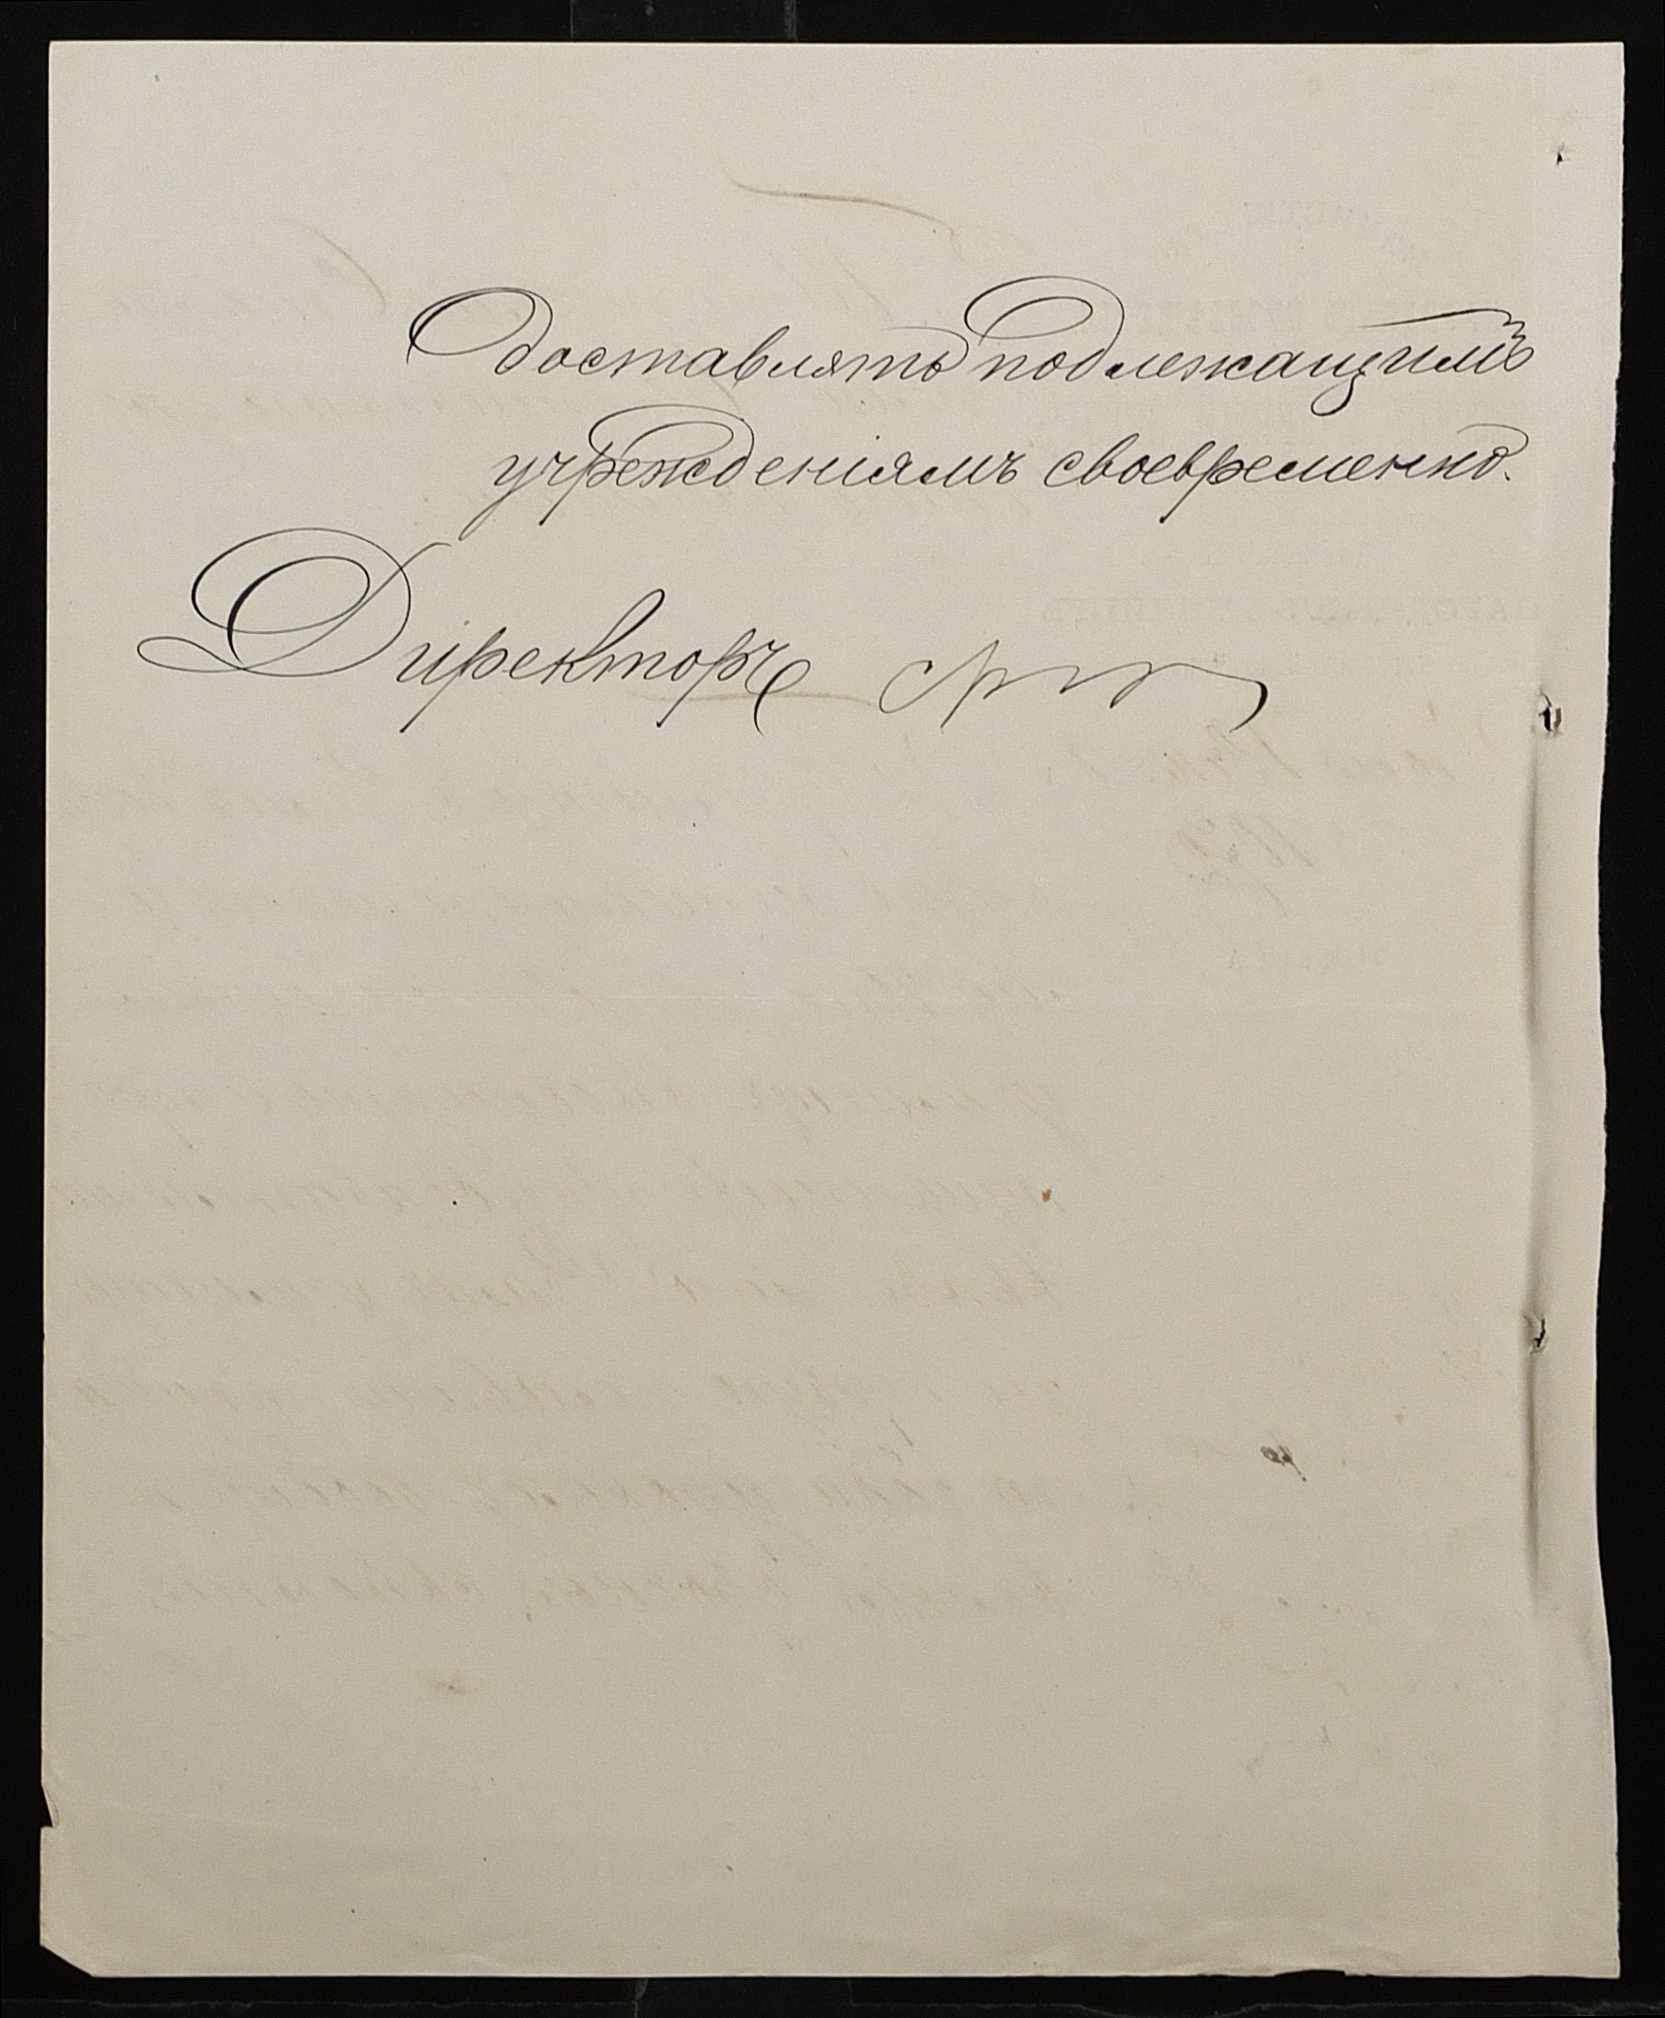 доставлять подлежащимъ
учрежденіямъ своевременно.
Директоръ